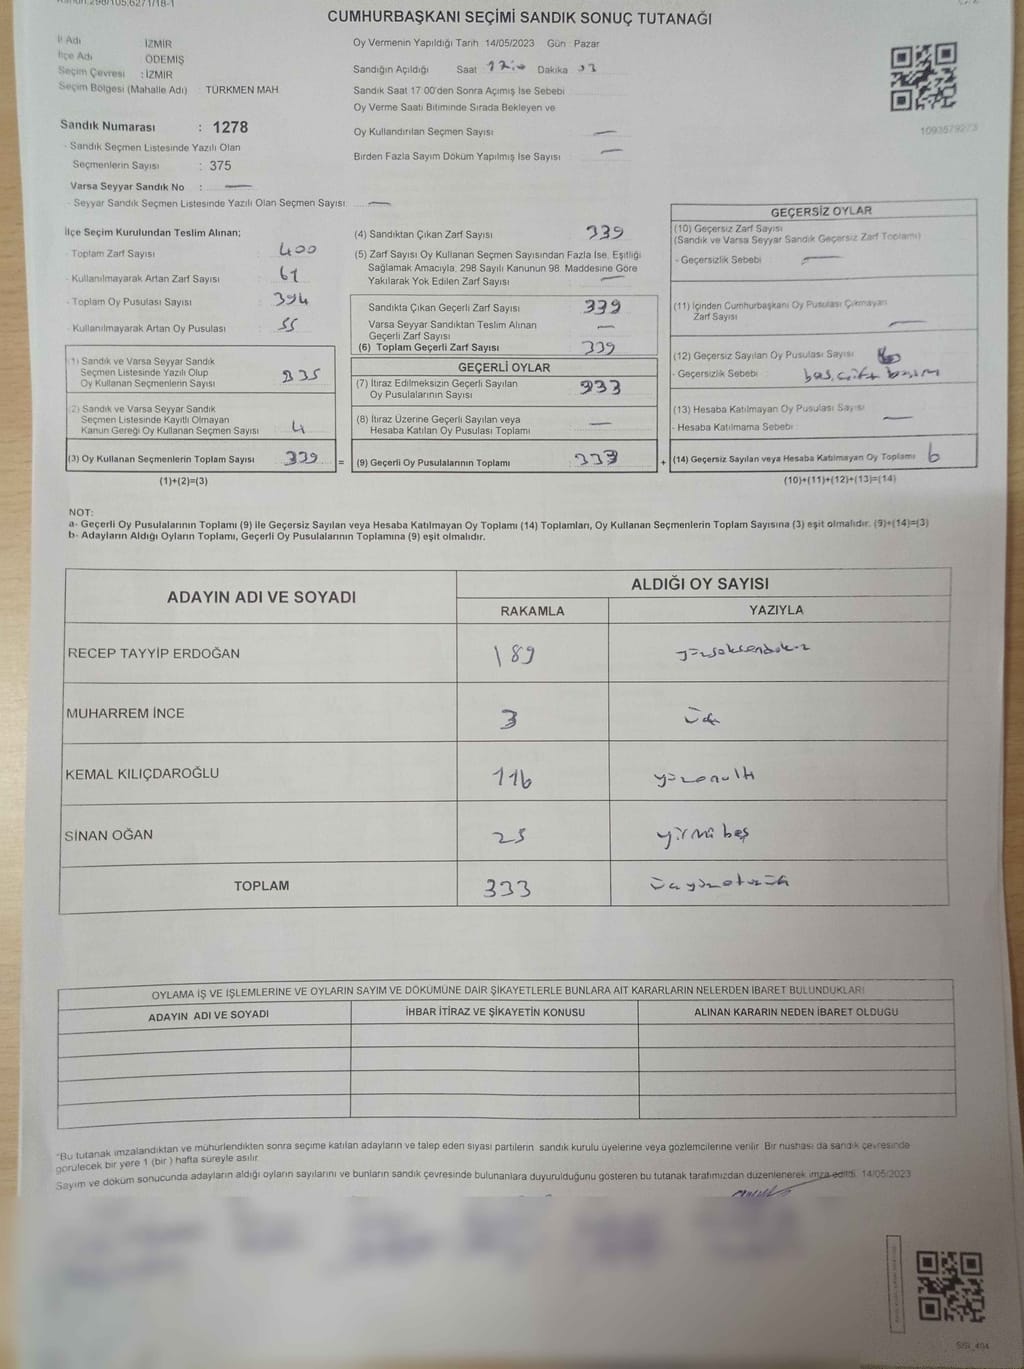 CUMHURBAŞKANI SEÇİMİ SANDIK SONUÇ TUTANAĞI
İl Adı İZMİR
İlçe Adı ÖDEMİŞ
Seçim Çevresi : İZMİR
Seçim Bölgesi (Mahalle Adı) : TÜRKMEN MAH.
Oy Vermenin Yapıldığı Tarih 14/05/2023 Gün : Pazar
Sandığın Açıldığı Saat Dakika
Sandık Saat 17 00'den Sonra Açımış İse Sebebi
Oy Verme Saati Bitiminde Sırada Bekleyen ve
Oy Kullandırılan Seçmen Sayısı —
Birden Fazla Sayım Döküm Yapılmış İse Sayısı —
1093579273
Sandık Numarası : 1278
- Sandık Seçmen Listesinde Yazılı Olan
Seçmenlerin Sayısı : 375
Varsa Seyyar Sandık No : —
- Seyyar Sandık Seçmen Listesinde Yazılı Olan Seçmen Sayısı: —
İlçe Seçim Kurulundan Teslim Alınan;
- Toplam Zarf Sayısı 400
- Kullanılmayarak Artan Zarf Sayısı 61
- Toplam Oy Pusulası Sayısı 394
- Kullanılmayarak Artan Oy Pusulası 55
(1) Sandık ve Varsa Seyyar Sandık
Seçmen Listesinde Yazılı Olup
Oy Kullanan Seçmenlerin Sayısı 335
(2) Sandık ve Varsa Seyyar Sandık
Seçmen Listesinde Kayıtlı Olmayan
Kanun Gereği Oy Kullanan Seçmen Sayısı 4
(3) Oy Kullanan Seçmenlerin Toplam Sayısı 339 =
(1)+(2)=(3)
(4) Sandıktan Çıkan Zarf Sayısı 339
(5) Zarf Sayısı Oy Kullanan Seçmen Sayısından Fazla İse, Eşitliği
Sağlamak Amacıyla, 298 Sayılı Kanunun 98. Maddesine Göre
Yakılarak Yok Edilen Zarf Sayısı —
Sandıkta Çıkan Geçerli Zarf Sayısı 339
Varsa Seyyar Sandıktan Teslim Alınan
Geçerli Zarf Sayısı —
(6) Toplam Geçerli Zarf Sayısı 339
GEÇERLİ OYLAR
(7) İtiraz Edilmeksizin Geçerli Sayılan
Oy Pusulalarının Sayısı 333
(8) İtiraz Üzerine Geçerli Sayılan veya
Hesaba Katılan Oy Pusulası Toplamı —
(9) Geçerli Oy Pusulalarının Toplamı 333 +
GEÇERSİZ OYLAR
(10) Geçersiz Zarf Sayısı
(Sandık ve Varsa Seyyar Sandık Geçersiz Zarf Toplamı)
- Geçersizlik Sebebi —
(11) İçinden Cumhurbaşkanı Oy Pusulası Çıkmayan
Zarf Sayısı —
(12) Geçersiz Sayılan Oy Pusulası Sayısı 6
- Geçersizlik Sebebi : boş, çift basım
(13) Hesaba Katılmayan Oy Pusulası Sayısı —
- Hesaba Katılmama Sebebi :
(14) Geçersiz Sayılan veya Hesaba Katılmayan Oy Toplamı 6
(10)+(11)+(12)+(13)=(14)
NOT:
a- Geçerli Oy Pusulalarının Toplamı (9) ile Geçersiz Sayılan veya Hesaba Katılmayan Oy Toplamı (14) Toplamları, Oy Kullanan Seçmenlerin Toplam Sayısına (3) eşit olmalıdır. (9)+(14)=(3)
b- Adayların Aldığı Oyların Toplamı, Geçerli Oy Pusulalarının Toplamına (9) eşit olmalıdır.
ADAYIN ADI VE SOYADI
ALDIĞI OY SAYISI
RAKAMLA YAZIYLA
RECEP TAYYİP ERDOĞAN 189 yüzseksendokuz
MUHARREM İNCE 3 üç
KEMAL KILIÇDAROĞLU 116 yüzonaltı
SİNAN OĞAN 25 yirmi beş
TOPLAM 333 üçyüzotuzüç
OYLAMA İŞ VE İŞLEMLERİNE VE OYLARIN SAYIM VE DÖKÜMÜNE DAİR ŞİKAYETLERLE BUNLARA AİT KARARLARIN NELERDEN İBARET BULUNDUKLARI
ADAYIN ADI VE SOYADI İHBAR İTİRAZ VE ŞİKAYETİN KONUSU ALINAN KARARIN NEDEN İBARET OLDUĞU
"Bu tutanak imzalandıktan ve mühürlendikten sonra seçime katılan adayların ve talep eden siyasi partilerin sandık kurulu üyelerine veya gözlemcilerine verilir. Bir nüshası da sandık çevresinde
görülecek bir yere 1 (bir) hafta süreyle asılır.
Sayım ve döküm sonucunda adayların aldığı oyların sayılarını ve bunların sandık çevresinde bulunanlara duyurulduğunu gösteren bu tutanak tarafımızdan düzenlenerek imza edildi. 14/05/2023